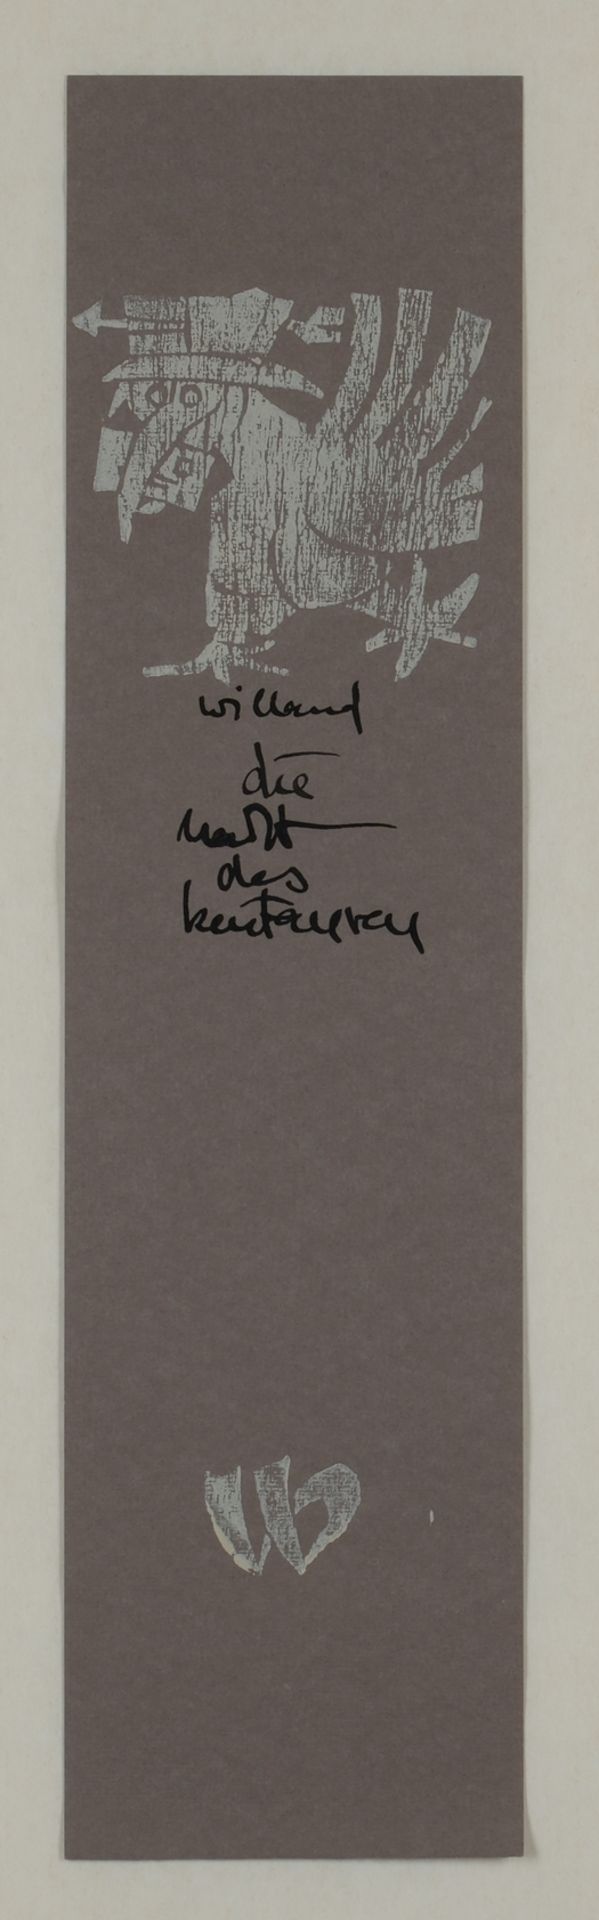 willand
die
nacht
des
kentauren
W